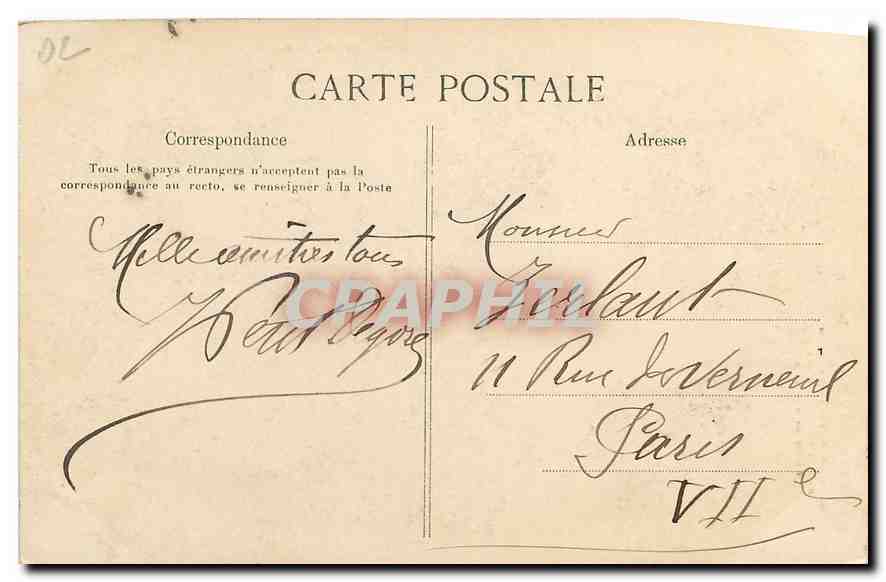 DL
CARTE POSTALE
Correspondance
Tous les pays étrangers n'acceptent pas la
correspondance au recto, se renseigner à la Poste
Mille amitiés tous
Adresse
Monsieur
Zerlaut
11 Rue de Verneuil
Paris
VIIe
CRAPHIL